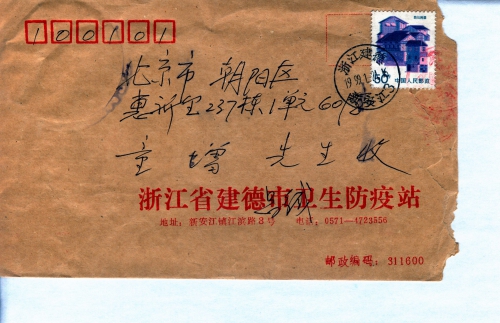 100101
北京市 朝阳区
惠新里237栋1单元609号
童增 先生收
浙江省建德市卫生防疫站
地址：新安江镇江滨路3号 电话：0571—4723556
邮政编码：311600
浙江建德
50
中国人民邮政